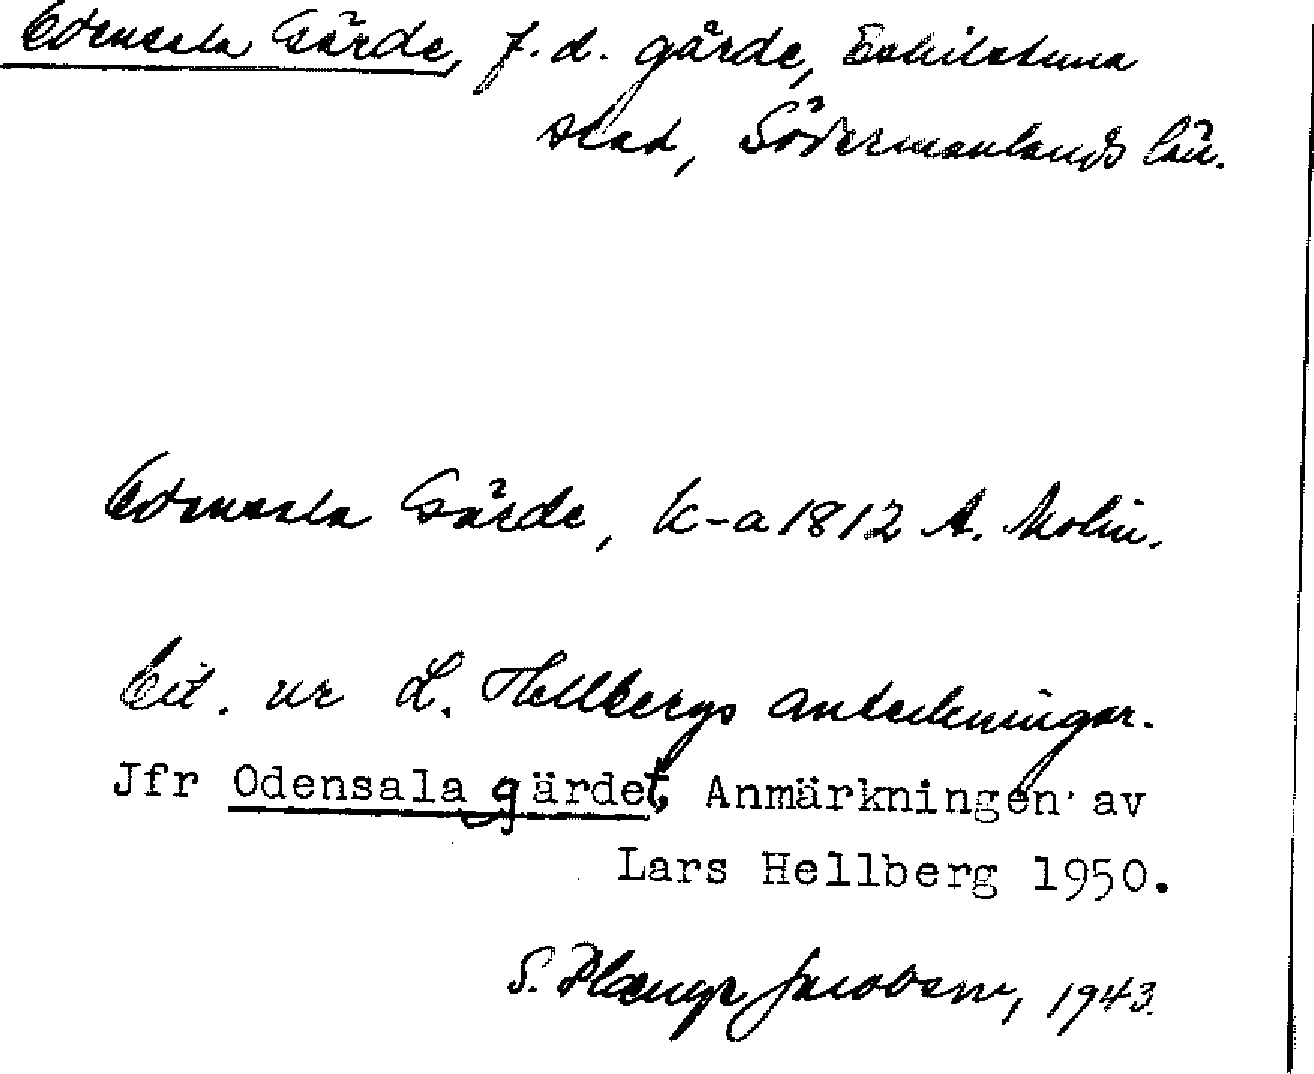 Edensala Gärde, f.d. gärde, Eskilstuna
stad, Södermanlands län.
Edensala Gärde, k-a 1812 A. Molin.
Cit. ur L. Hellbergs anteckningar.
Jfr Odensala gärdet, Anmärkningen av
Lars Hellberg 1950.
S. Jacobson, 1943.